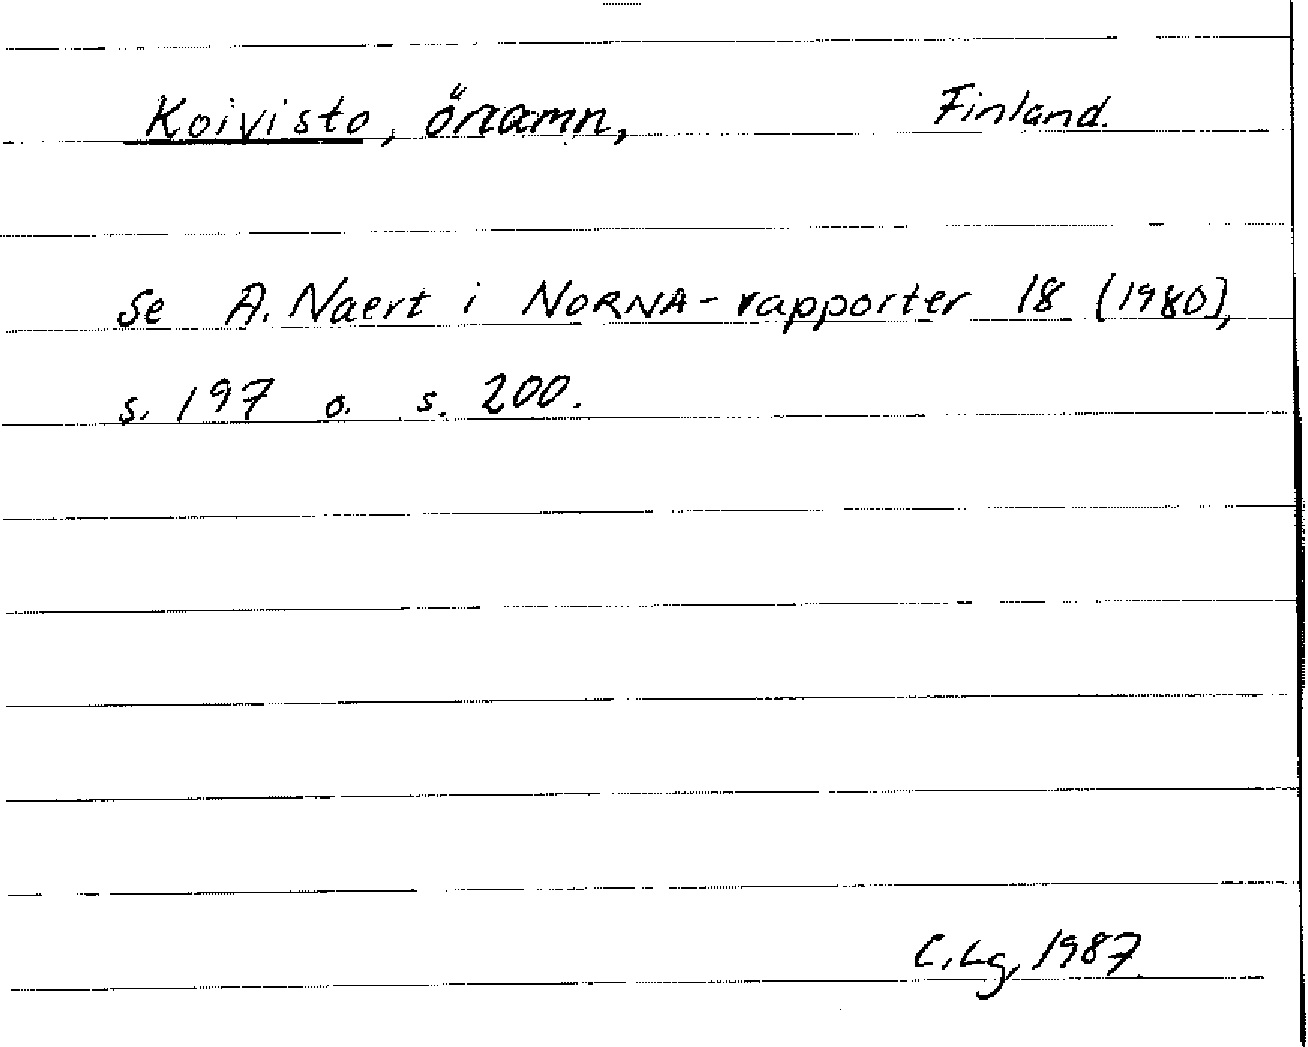 Koivisto, önamn, Finland.
Se A. Naert i NORNA-rapporter 18 (1980),
s. 197 o. s. 200.
C. Lg, 1987.